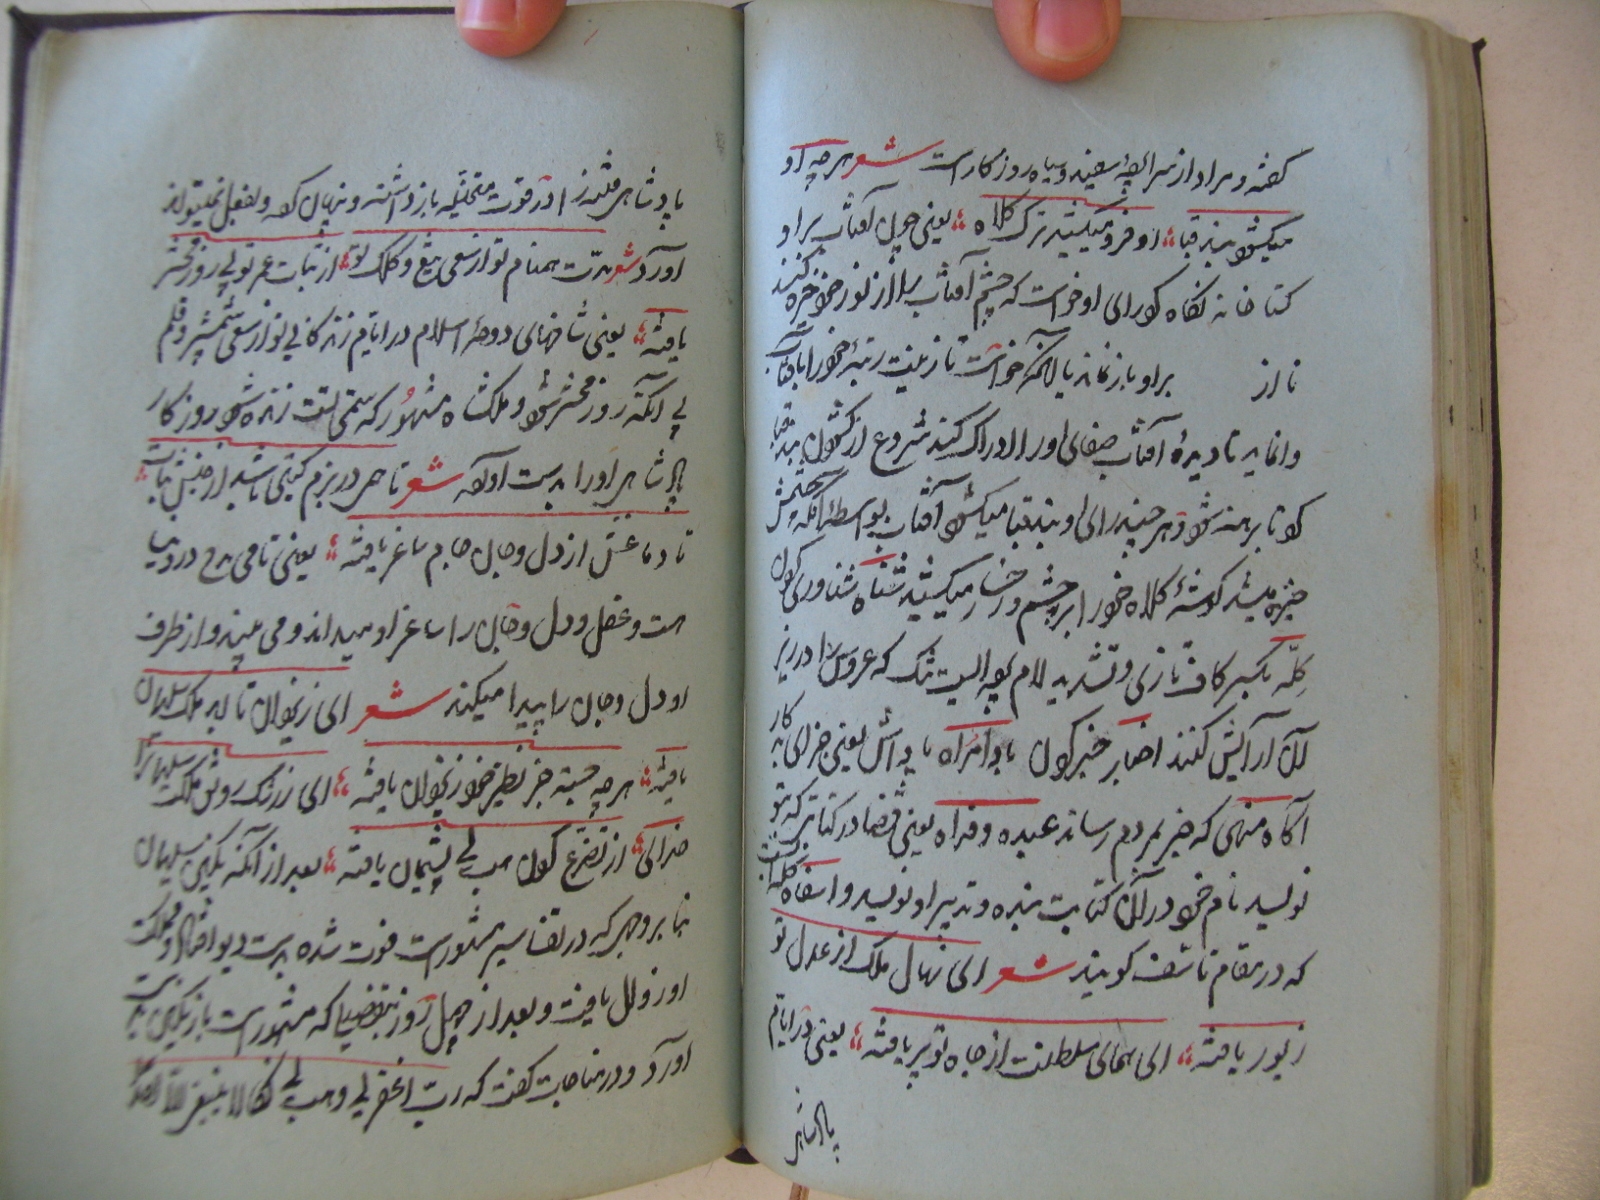 گفته و مراد از سر ابقه سفید و سیاه روزگار است شعر هر چه او
میکشود بند قبا او فرو میکشید ترک کلاه یعنی چون آفتاب برابر او
کتا خانه نگاه کور ای او خواست که چشم آفتاب را از نور خود خیره کند
تا از برابر او باز نماند یا لانکه خواست تا زینت رتبهٔ خود را بافتاب
وا نماید تا دیدهٔ آفتاب صفای او را ادراک کند شروع از کشودن بند قبا
کو تا برهنه شود و هر چند رای او بند قبا میکشود آفتاب بواسطهٔ آنکه چشمش
خیره میشد گوشهٔ کلاه خود را بر چشم و رخسار میکشید شناه شناوری کردن
کلّه بکسر کاف تازی و تشدید لام پشه ایست تنک که عروس را در زیر
آن آرایش کنند اخبار خبر کردن باد آفراه پاداش یعنی جزای بد کار
آگاه منهی که خبر بمردم رساند عبده و فداه یعنی قضا در کتابتی که بتو
نویسد نام خود در آن کتابت بنده و تدبیر او نویسد وا اسفاه کلمه ایست
که در مقام تاسف گویند شعر ای نهال ملک از عدل تو
زیور یافته ای همای سلطنت از جاه تو پر یافته یعنی در ایام
پادشاهی
پادشاهی قدر از او قوت متخیله باز داشته و نهال کهه و بفعل نمیتواند
آورد شعر مدت همنام تو از سعی تیغ و کلک تو از ثبات عمر تو پی روز محشر
یافته یعنی شاخهای دوحهٔ اسلام در ایام زندگانی تو از سعی شمشیر و قلم
پی آنکه روز محشر شود و ملکشاه مشهور که سمی تست زنده شود روزگار
پادشاهی او را بدست آورده شعر تا می در بزم گیتی باشد از جنبش ثبات
تا دماغش از دل و جان جام ساغر یافته یعنی تا می مدح در دنیا
هست و عقل و دل و جان را ساغر او میداند و می بیند و از طرف
او دل و جان را پیدا میکند شعر ای ز یزدان تا ابد ملک سلیمان
یافته هر چه جسته جز نظیر خود ز یزدان یافته ای ز رنگ روش ملک سلیمان را
خدای از تضرع کردن هب لی پشیمان یافته بعد از آنکه نگین سلیمان
بنا بر وجهی که در تفاسیر مشهور است فوت شده بدست دیو افتاد و مملکت
او زوال یافت و بعد از چهل روز بتفضیلیکه مشهور است باز نگین بدست
آورد و در مناجات گفت که رب اغفر لی و هب لی ملکا لا ینبغی لاحد